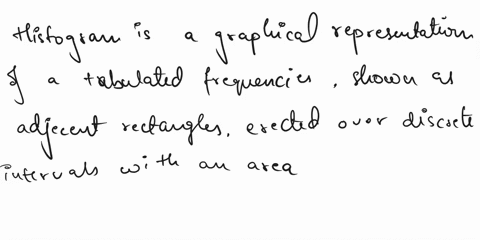 Histogram is a graphical representation
of a tabulated frequencies, shown as
adjecent rectangles, erected over discrete
intervals with an area